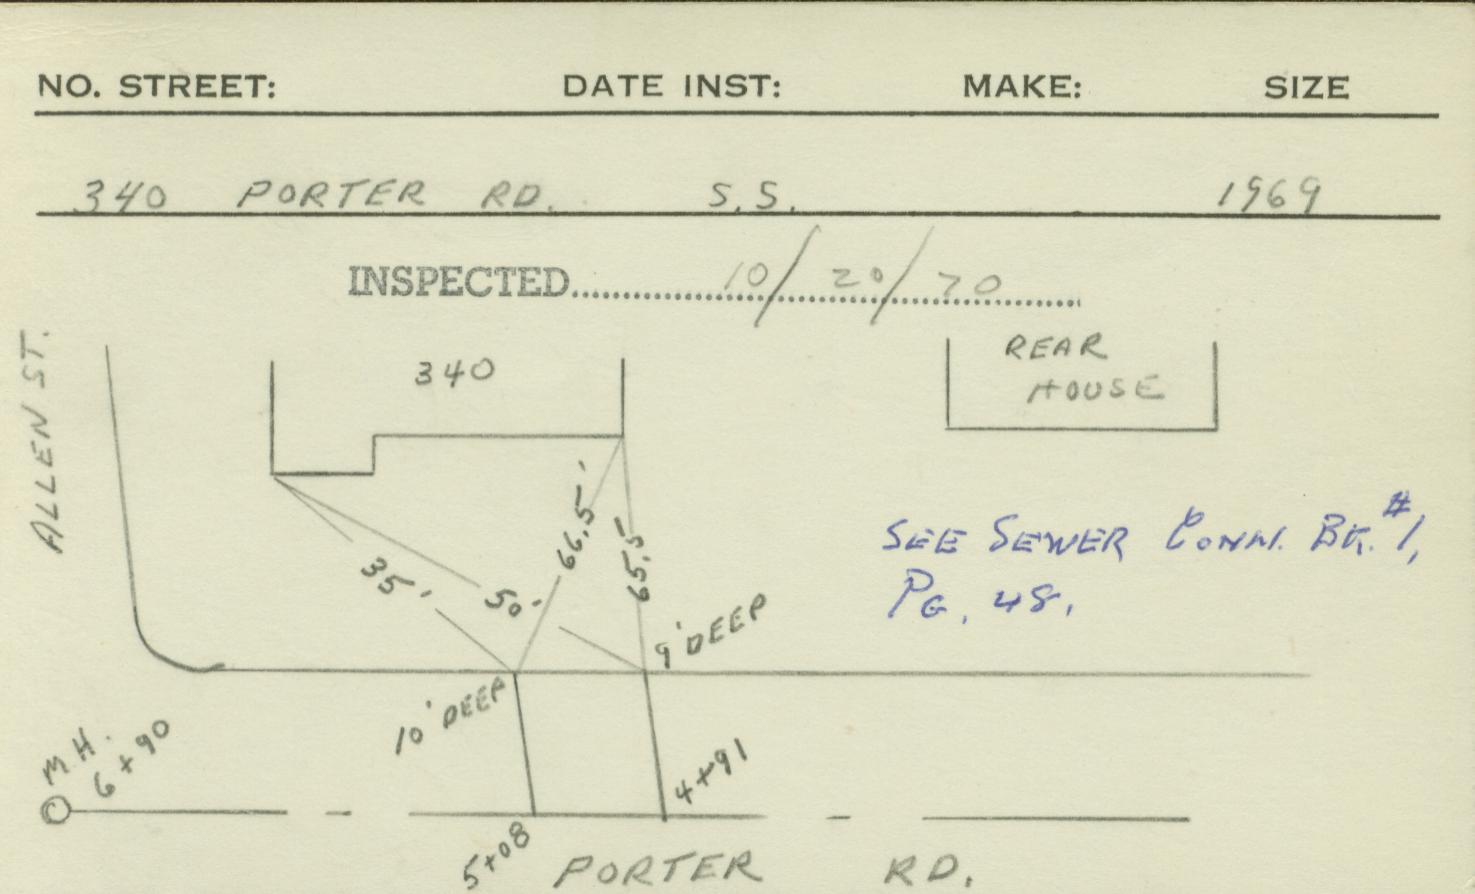 NO. STREET: DATE INST: MAKE: SIZE
340 PORTER RD. S.S. 1969
INSPECTED 10/20/70
ALLEN ST.
340
REAR
HOUSE
35'
50'
66.5'
65.5'
SEE SEWER CONN. BK. #1,
PG. 48.
9' DEEP
10' DEEP
M.H.
6+90
4+91
5+08
PORTER RD.